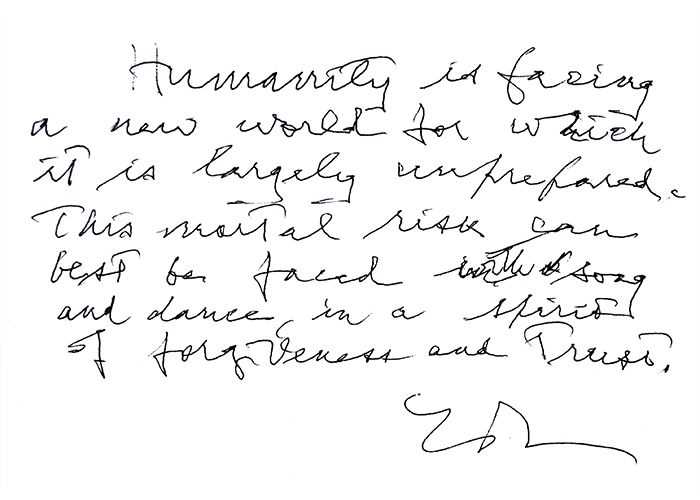 Humanity is facing
a new world for which
it is largely unprepared.
This mortal risk can
best be faced with song
and dance, in a spirit
of forgiveness and Trust.